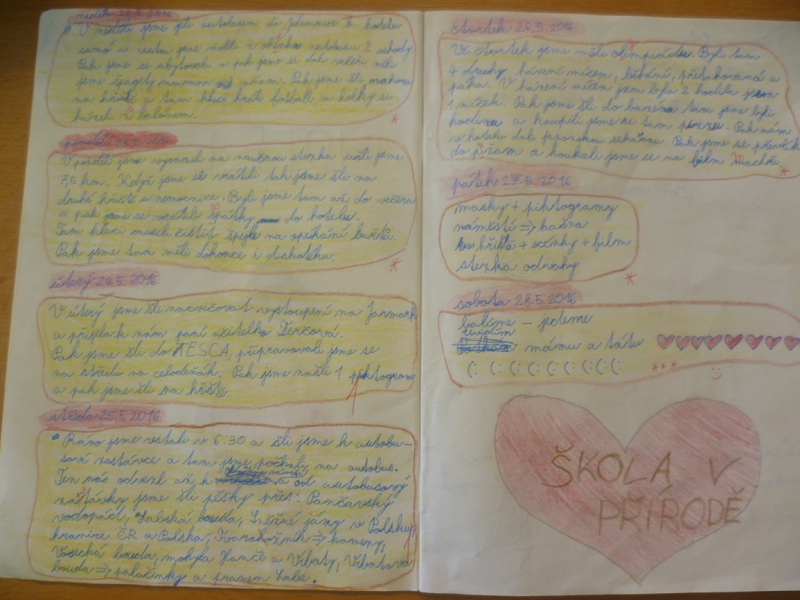 neděle 22.5.2016
V neděli jsme jeli autobusem do Jilemnice k hotelu
samá a cestou jsme viděli z okénka autobusu 2 nehody.
Pak jsme se ubytovali a pak jsme si dali večeři měli
jsme špagety mňam. Pak jsme šli
na hřiště a tam kluci hráli fotball a holky si
házeli s balónem.
pondělí 23.5.2016
V pondělí jsme vyrazili na naučnou stezku ušli jsme
7,5 km. Když jsme se vrátili tak jsme šli na
druhé hřiště u nemocnice. Byli jsme tam až do večera
a pak jsme se vrátili zpátky do hotelu.
Tam kluci museli čistit špejle na opékání buřtů.
Pak jsme tam měli dokonce i diskotéku.
úterý 24.5.2016
V úterý jsme šli nacvičovat vystoupení na Jarmark
a přijela k nám paní učitelka
Pak jsme šli do TESCA, připravovali jsme se
na středu na celodeňák. Pak jsme našli 1 piktogram
a pak jsme šli na hřiště.
středa 25.5.2016
Ráno jsme vstali v 6:30 a šli jsme k autobu-
sové zastávce a tam jsme počkaly na autobus.
Ten nás odvezl až k a od autobusový
zastávky jsme šli pěšky přes: Pančavský
vodopád, Labská bouda, Sněžné jámy v Polsku,
hranice ČR a Polska, Tvarožník => kameny,
Vosecká bouda, mohyla Hanče a Vrbaty, Vrbatova
bouda => palačinky a pramen Labe.
čtvrtek 26.5.2016
Ve čtvrtek jsme měli olimpiádu. Byli tam
4 druhy, házení míčem, běhání, přetahovaná a
. V házení míčem jsem byla 2 hodila jsem
1 míček. Pak jsme šli do bazénu tam jsme byli
hodinu a koupili jsme se tam . Pak nám
v hotelu dali
do pyžam a koukali jsme se na film
pátek 27.5.2016
masky + piktogramy
náměstí => kašna
hřiště + scénky + film
stezka odvahy
sobota 28.5.2016
balíme – jedeme
uvidím
mámu a tátu
ŠKOLA V
PŘÍRODĚ